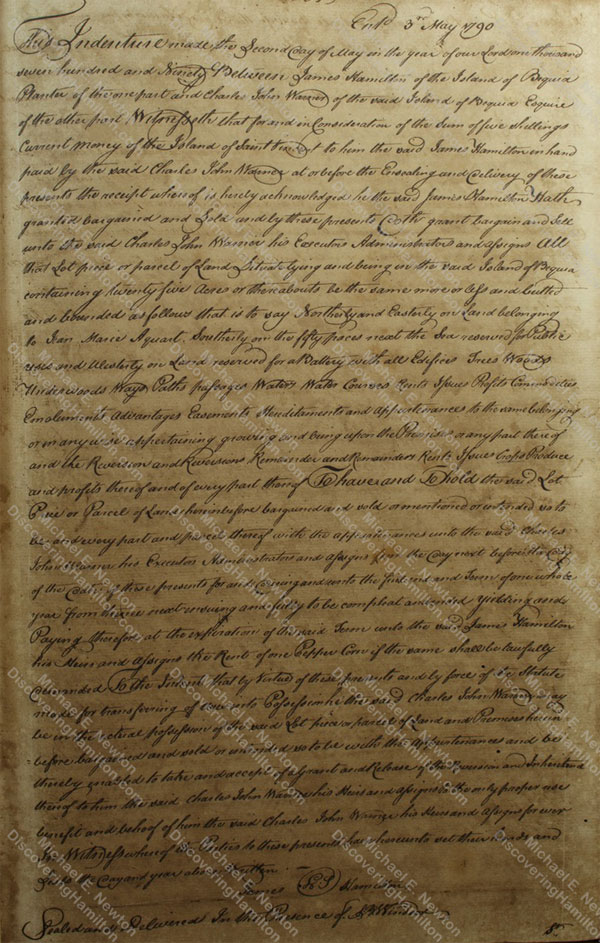 Entd. 3rd May 1790
This Indenture made the Second day of May in the year of our Lord one thousand
seven hundred and Ninety Between James Hamilton of the Island of Bequia
Planter of the one part and Charles John Warner of the said Island of Bequia Esquire
of the other part Witnesseth that for and in Consideration of the Sum of five shillings
Current money of the Island of Saint Vincent to him the said James Hamilton in hand
paid by the said Charles John Warner at or before the Ensealing and Delivery of these
presents the receipt whereof is hereby acknowledged he the said James Hamilton Hath
granted bargained and Sold and by these presents Doth grant bargain and Sell
unto the said Charles John Warner his Executors Administrators and assigns All
that Lot piece or parcel of Land Situate lying and being in the said Island of Bequia
containing twenty five Acres or thereabouts be the same more or less and butted
and bounded as follows that is to say Northerly and Easterly on Land belonging
to Jean Marie Aquart, Southerly on the fifty paces next the Sea reserved for Public
uses and Westerly on Land reserved for a Battery with all Edifices Trees Woods
Underwoods Ways Paths passages Waters Water Courses Rents Issues Profits Commodities
Emoluments Advantages Easements Hereditaments and Appurtenances to the same belonging
or in any wise appertaining growing and being upon the Premises or any part thereof
and the Reversion and Reversions Remainder and Remainders Rents Issues Crops Produce
and profits thereof and of every part thereof To have and To hold the said Lot
Piece or Parcel of Land hereinbefore bargained and sold or mentioned or intended so to
be and every part and parcel thereof with the appurtenances unto the said Charles
John Warner his Executors Administrators and assigns from the day next before the day
of the date of these presents for and during and unto the full end and Term of one whole
year from thence next ensuing and fully to be compleat and ended Yielding and
Paying therefore at the expiration of the said Term unto the said James Hamilton
his Heirs and Assigns the Rent of one Pepper Corn if the same shall be lawfully
demanded To the Intent that by Virtue of these presents and by force of the Statute
made for transferring of Uses into Possession he the said Charles John Warner may
be in the actual possession of the said Lot piece or parcel of Land and Premises herein
before bargained and sold or intended so to be with the Appurtenances and be
thereby enabled to take and accept of a Grant and Release of the Reversion and Inheritance
thereof to him the said Charles John Warner his Heirs and assigns to the only proper use
benefit and behoof of him the said Charles John Warner his Heirs and Assigns for ever
In Witness whereof the Parties to these presents have hereunto set their Hands and
Seals the Day and year above written
James LS Hamilton
Sealed and Delivered In the Presence of
Michael E. Newton
DiscoveringHamilton.com